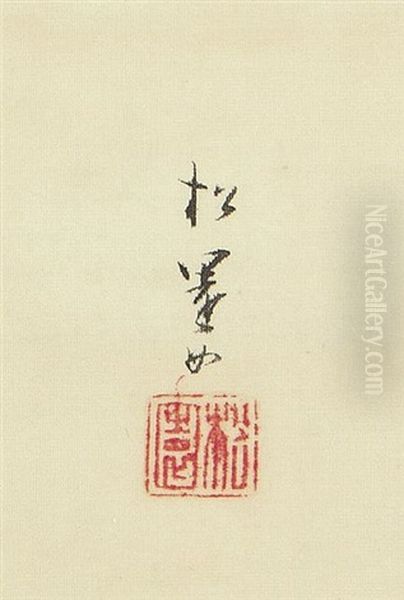 松
園
女
松園
NiceArtGallery.com